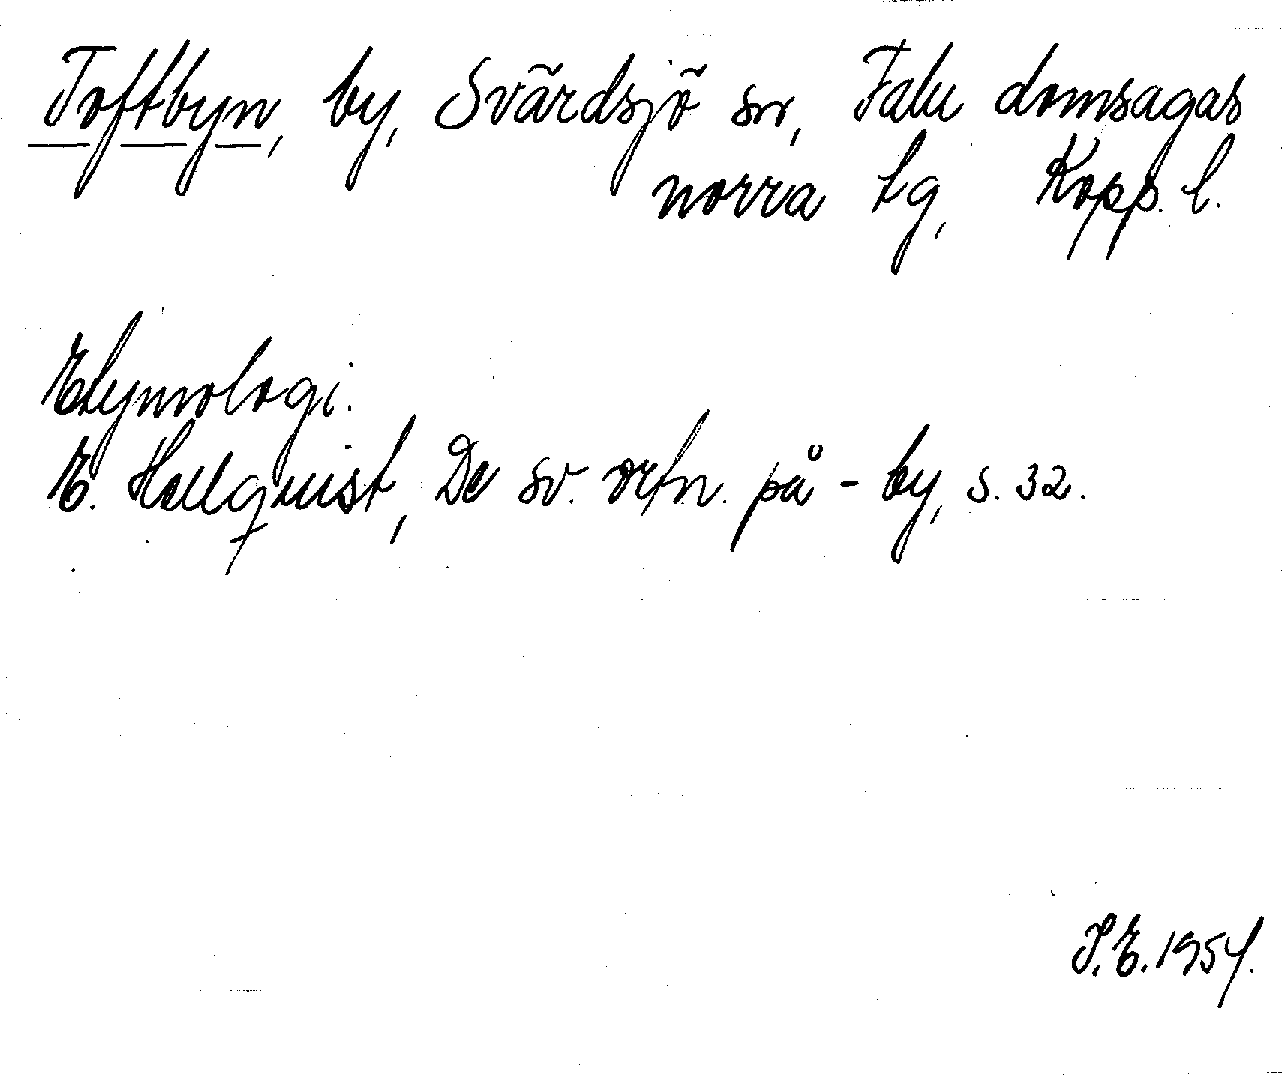 Toftbyn, by, Svärdsjö sn, Falu domsagas
norra tg, Kopp. l.
Etymologi.
E. Hellquist, De sv. ortn. på -by, s. 32.
S.E. 1954.